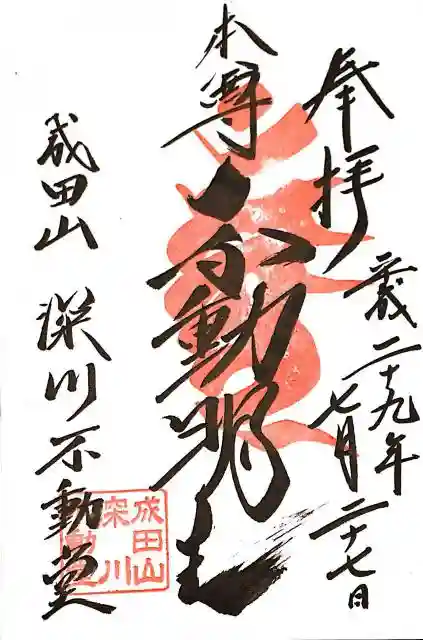 奉拝
平成二十九年
七月二十七日
本尊
大不動明王
成田山 深川不動堂
成田山
深川
不動堂